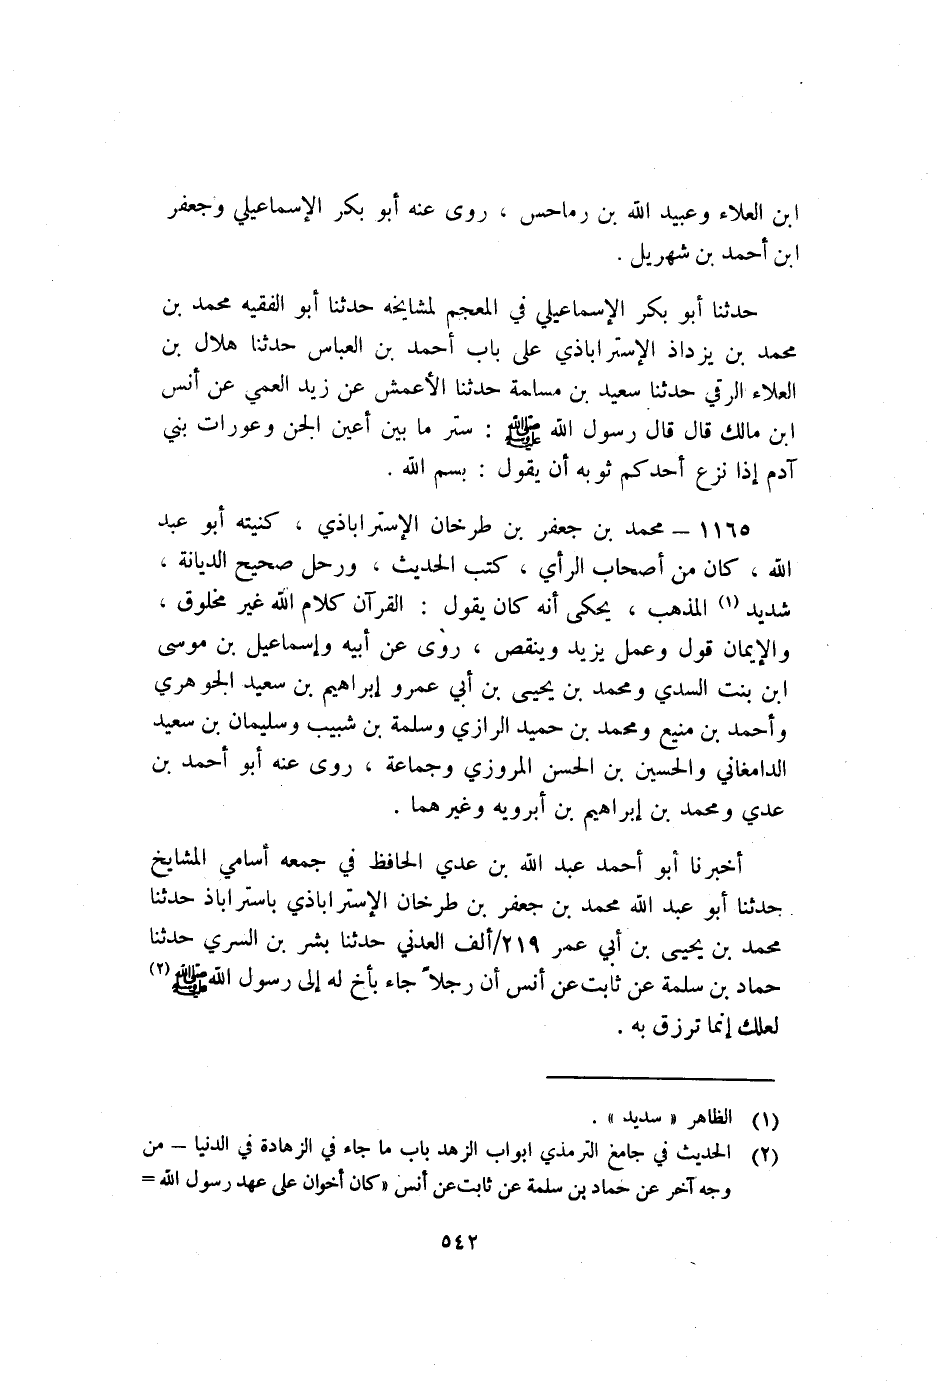 ابن العلاء وعبيد الله بن رماحس ، روى عنه أبو بكر الإسماعيلي وجعفر
ابن أحمد بن شهريل .
حدثنا أبو بكر الإسماعيلي في المعجم لمشايخه حدثنا أبو الفقيه محمد بن
محمد بن يزداذ الإستراباذي على باب أحمد بن العباس حدثنا هلال بن
العلاء الرقي حدثنا سعيد بن مسلمة حدثنا الأعمش عن زيد العمي عن أنس
ابن مالك قال قال رسول الله ﷺ : ستر ما بين أعين الجن وعورات بني
آدم إذا نزع أحدكم ثوبه أن يقول : بسم الله .
١١٦٥ – محمد بن جعفر بن طرخان الإستراباذي ، كنيته أبو عبد
الله ، كان من أصحاب الرأي ، كتب الحديث ، ورحل صحيح الديانة ،
شديد (١) المذهب ، يحكى أنه كان يقول : القرآن كلام الله غير مخلوق ،
والإيمان قول وعمل يزيد وينقص ، روى عن أبيه وإسماعيل بن موسى
ابن بنت السدي ومحمد بن يحيى بن أبي عمرو إبراهيم بن سعيد الجوهري
وأحمد بن منيع ومحمد بن حميد الرازي وسلمة بن شبيب وسليمان بن سعيد
الدامغاني والحسين بن الحسن المروزي وجماعة ، روى عنه أبو أحمد بن
عدي ومحمد بن إبراهيم بن أبرويه وغيرهما .
أخبرنا أبو أحمد عبد الله بن عدي الحافظ في جمعه أسامي المشايخ
حدثنا أبو عبد الله محمد بن جعفر بن طرخان الإستراباذي باستراباذ حدثنا
محمد بن يحيى بن أبي عمر ٢١٩/ألف العدني حدثنا بشر بن السري حدثنا
حماد بن سلمة عن ثابت عن أنس أن رجلاً جاء بأخ له إلى رسول الله ﷺ (٢)
لعلك إنما ترزق به .
(١) الظاهر « سديد » .
(٢) الحديث في جامع الترمذي ابواب الزهد باب ما جاء في الزهادة في الدنيا – من
وجه آخر عن حماد بن سلمة عن ثابت عن أنس «كان أخوان على عهد رسول الله =
٥٤٢